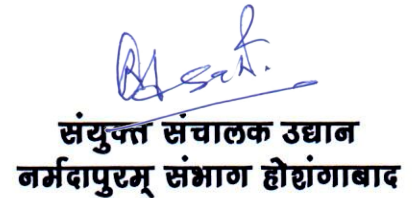 संयुक्त संचालक उद्यान
नर्मदापुरम् संभाग होशंगाबाद